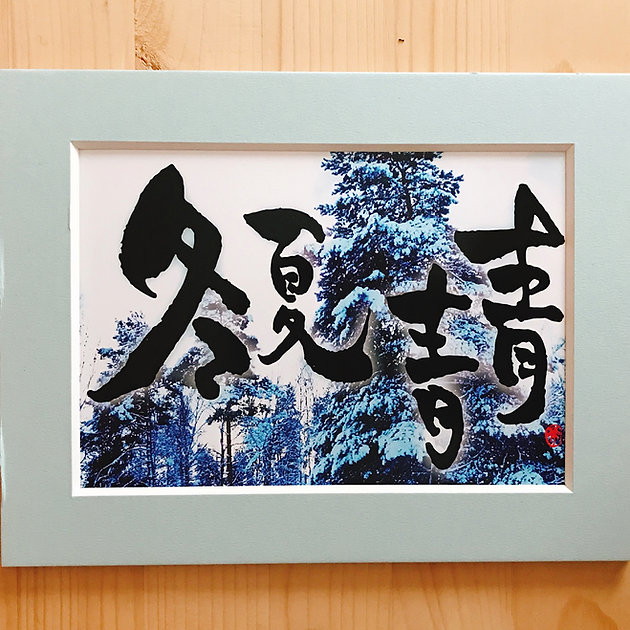 冬夏青青